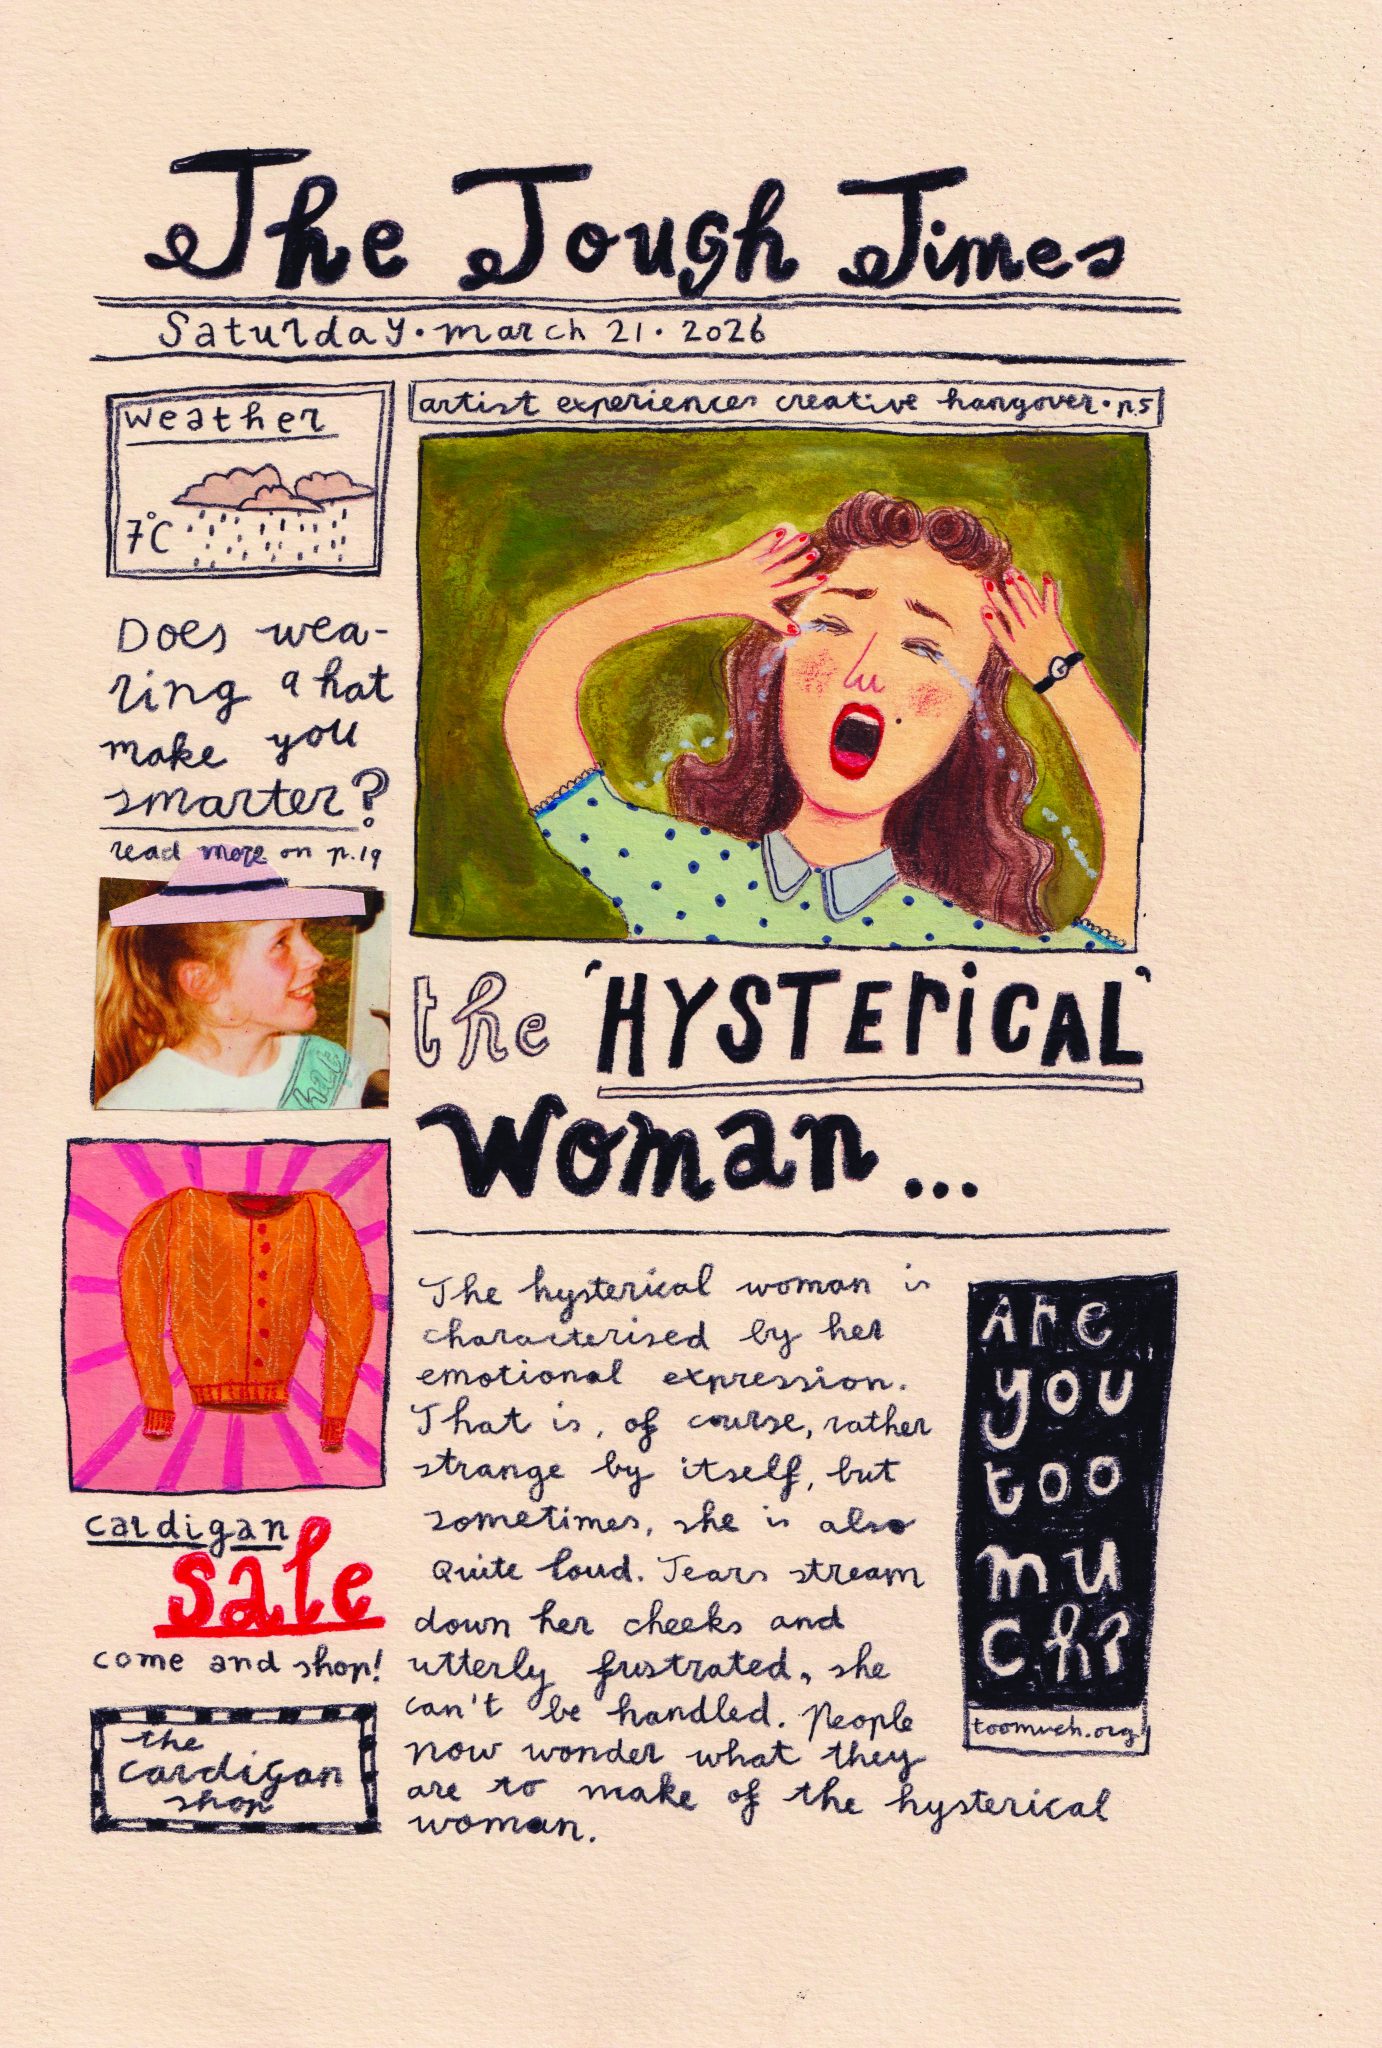 The Tough Times
Saturday • march 21 • 2026
weather
7°C
Does wea-
ring a hat
make you
smarter?
read more on p.19
hat
cardigan
sale
come and shop!
the
cardigan
shop
artist experiences creative hangover • p.5
the 'HYSTERICAL'
Woman...
The hysterical woman is
characterised by her
emotional expression.
That is, of course, rather
strange by itself, but
sometimes, she is also
quite loud. Tears stream
down her cheeks and
utterly frustrated, she
can't be handled. People
now wonder what they
are to make of the hysterical
woman.
Are
you
too
mu
ch?
toomuch.org